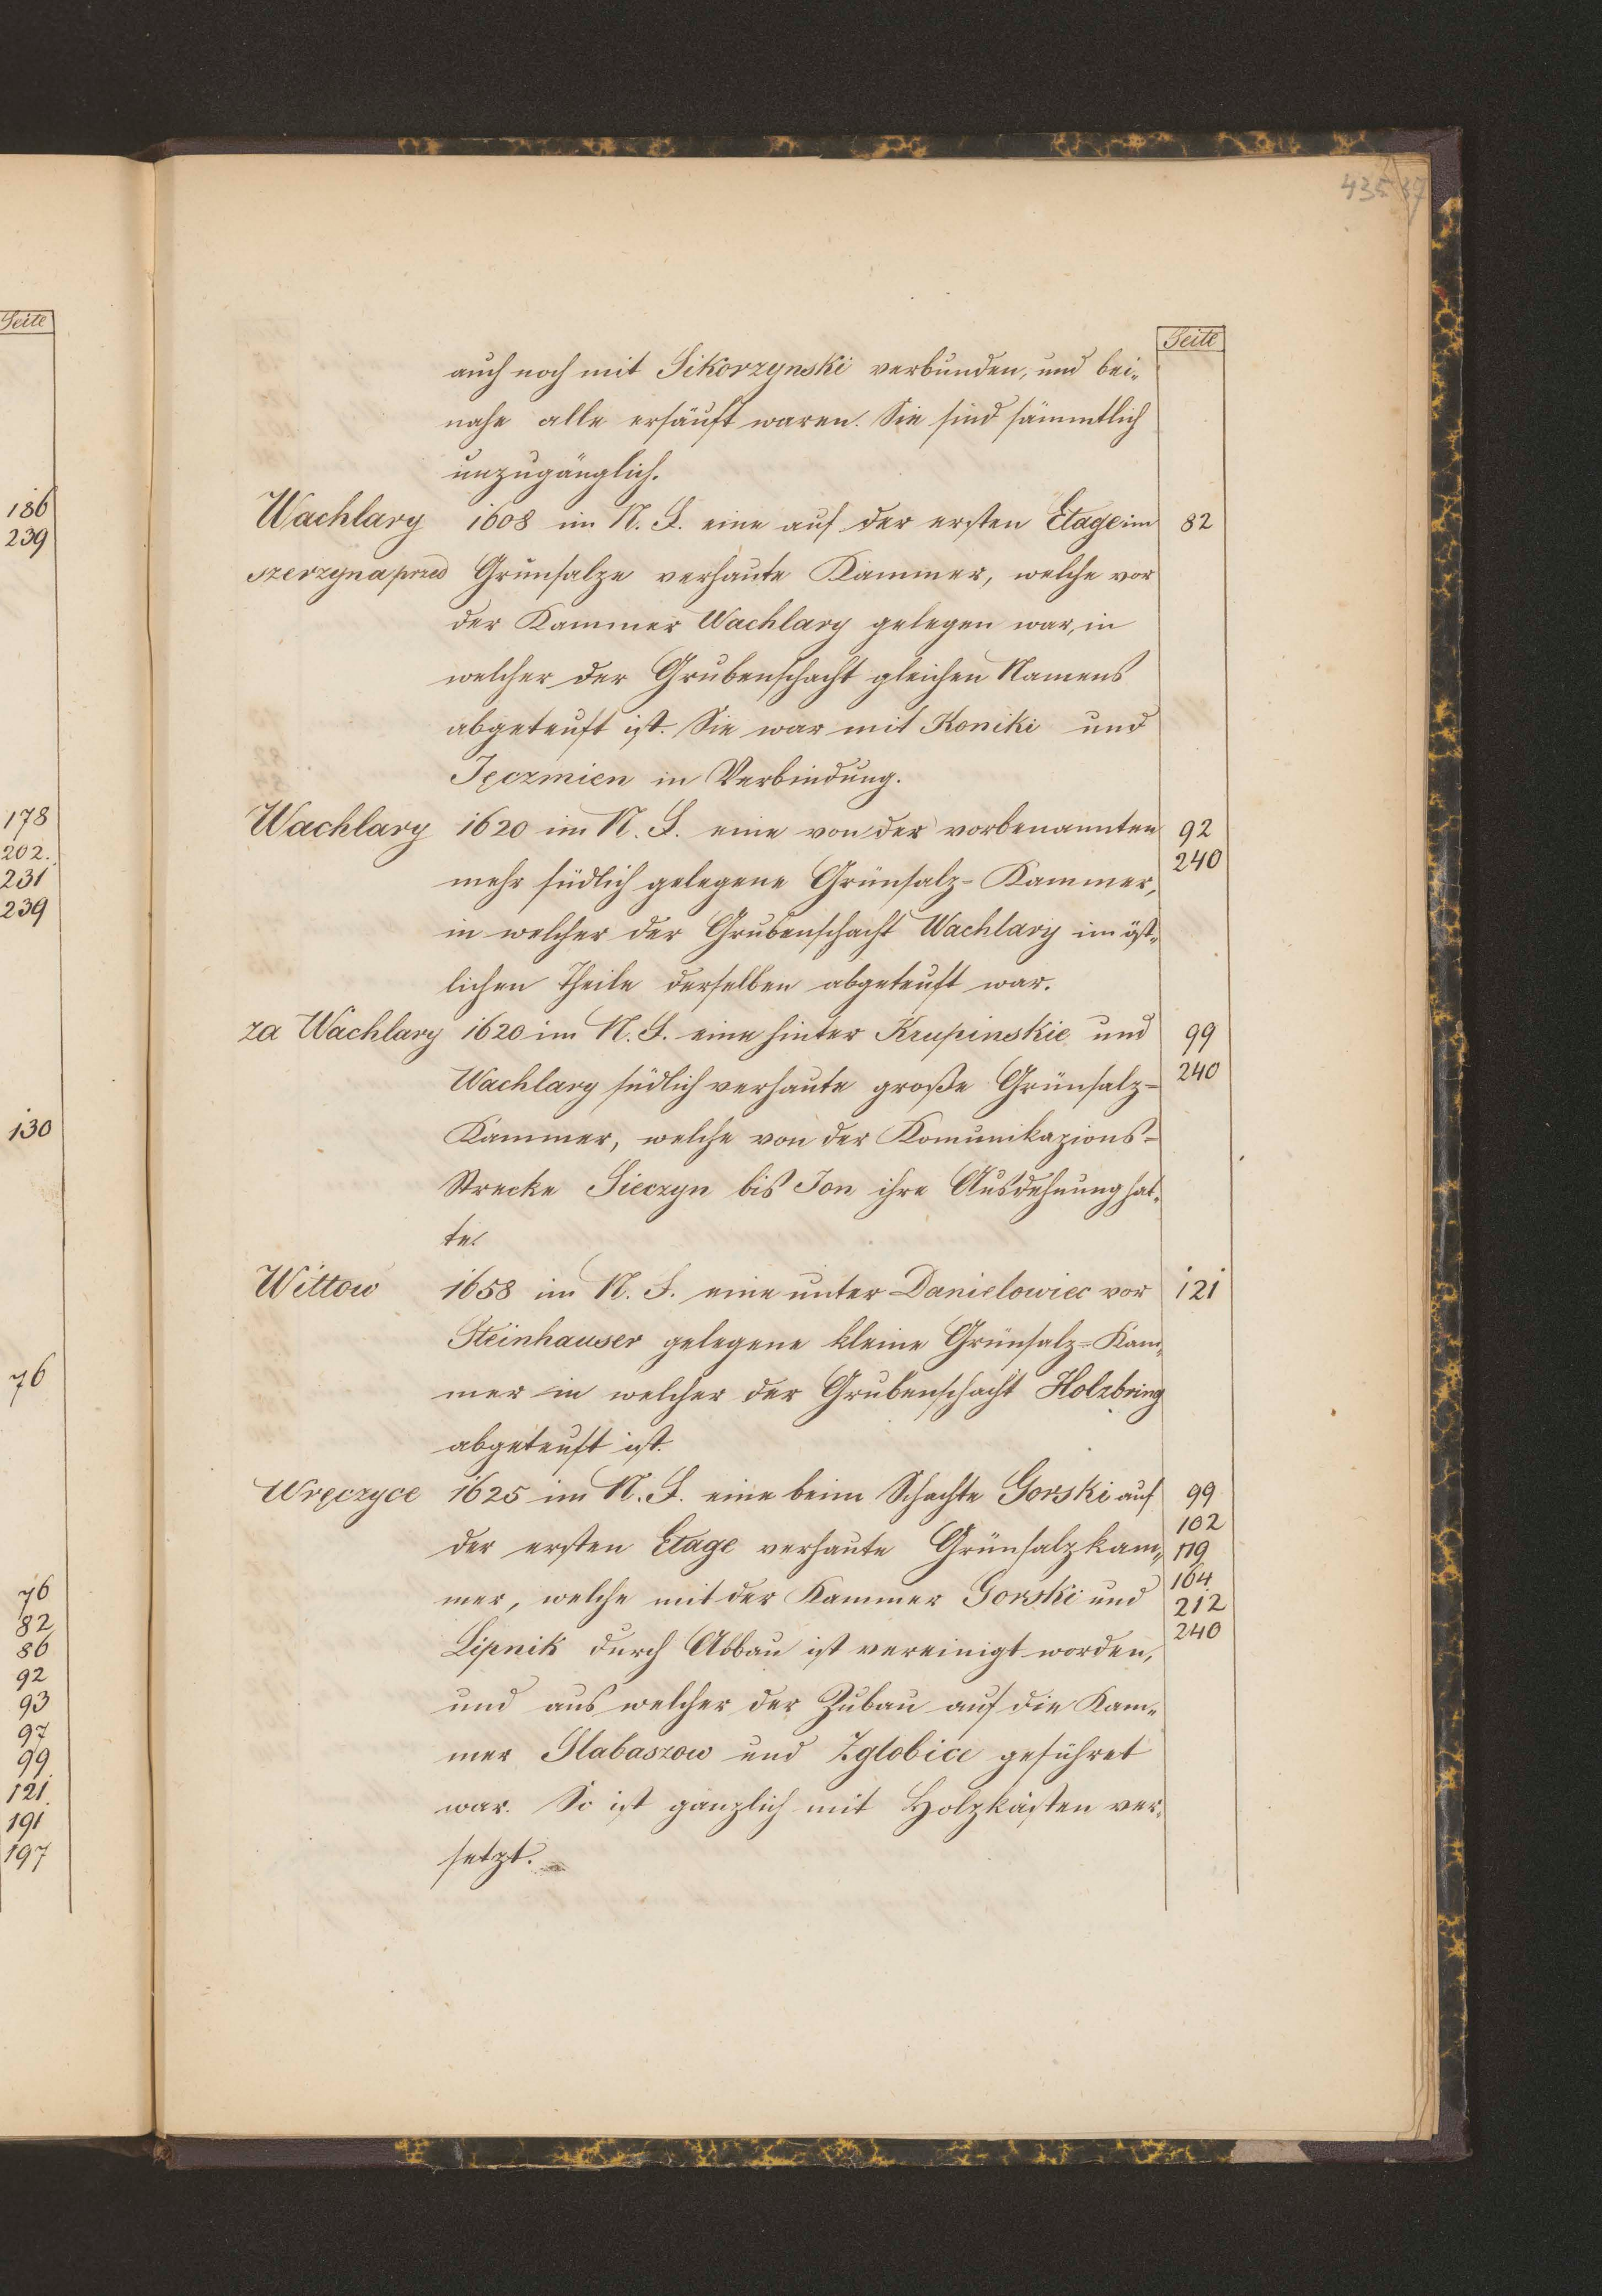 Seite
186
239
178
202.
231
239
130
76
76
82
86
92
93
97
99
121.
191
197
435
Seite
auch noch mit Sikorzynski verbunden, und bei-
nahe alle ersäuft waren. Sie sind sämmtlich
unzugänglich.
Wachlary 1608 im N. F. eine auf der ersten Etage im 82
szerzyna przed Grünsalze verhaute Kammer, welche vor
der Kammer Wachlary gelegen war, in
welcher der Grubenschacht gleichen Namens
abgeteuft ist. Sie war mit Koniki und
Jęczmien in Verbindung.
Wachlary 1620 im N. F. eine von der vorbenannten 92
240
mehr südlich gelegene Grünsalz-Kammer,
in welcher der Grubenschacht Wachlary im öst-
lichen Theile derselben abgeteuft war.
za Wachlary 1620 im N. F. eine hinter Krupinskie und 99
Wachlary südlich verhaute große Grünsalz- 240
Kammer, welche von der Komunikazions-
Strecke Sieczyn bis Jon ihre Ausdehnung hat-
te.
Wittow 1658 im N. F. eine unter Danielowiec vor 121
Steinhauser gelegene kleine Grünsalz-Kam-
mer in welcher der Grubenschacht Holzbring
abgeteuft ist.
Wręczyce 1625 im N. F. eine beim Schachte Gorski auf 99
102
der ersten Etage verhaute Grünsalzkam- 119
164
mer, welche mit der Kammer Gorski und 212
240
Lipnik durch Abbau ist vereinigt worden,
und aus welcher der Zubau auf die Kam-
mer Slabaszow und Zglobice geführet
war. So ist gänzlich mit Holzkästen ver-
setzt.